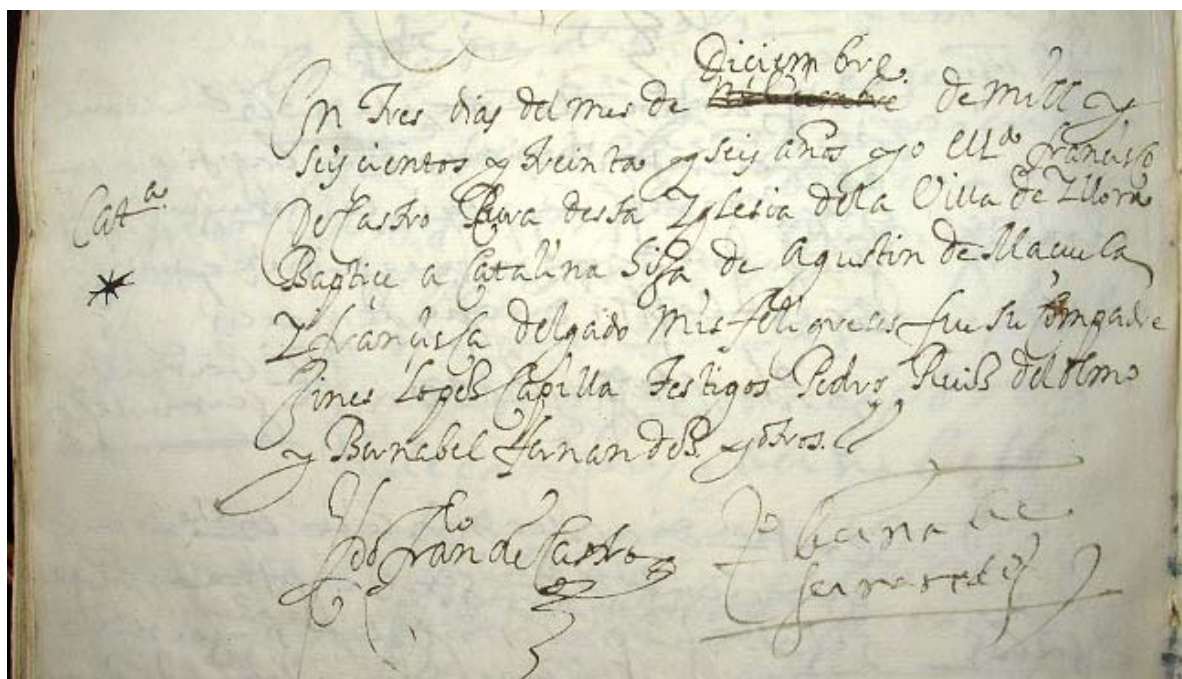 Diciembre.
En tres dias del mes de nobiembre de mill y
seiscientos y treinta y seis años yo el Ldo francisco
De Castro Cura desta Yglesia dela Villa de Yllora
Cata.
Baptice a Catalina hija de Agustin de Macuela
Y francisca delgado mis feligreses fue su Compadre
Gines Lopez Capilla testigos Pedro Ruiz del olmo
y Bernabel Hernandez. y otros.
Ldo Franco de Castro
bernabe
hernandez